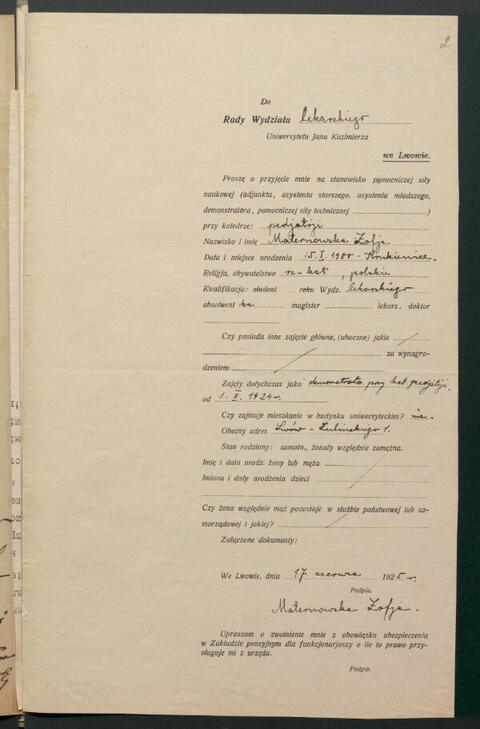 2
Do
Rady Wydziału lekarskiego
Uniwersytetu Jana Kazimierza
we Lwowie.
Proszę o przyjęcie mnie na stanowisko pomocniczej siły
naukowej (adjunkta, asystenta starszego, asystenta młodszego,
demonstratora, pomocniczej siły technicznej )
przy katedrze: pedjatrji
Nazwisko i imię Maternowska Zofja
Data i miejsce urodzenia 15. I. 1900 - Krukienice.
Religja, obywatelstwo rz-kat, polskie
Kwalifikacja: student roku Wydz. lekarskiego
absolwent ka magister lekarz, doktor
Czy posiada inne zajęcie główne, (uboczne) jakie
za wynagro-
dzeniem
Zajęty dotychczas jako demonstrator przy kat. pedjatrji.
od 1. X. 1924 r.
Czy zajmuje mieszkanie w budynku uniwersyteckim? nie.
Obecny adres Lwów - Zulińskiego 1.
Stan rodzinny: samotn., żonaty względnie zamężna.
Imię i data urodz. żony lub męża
Imiona i daty urodzenia dzieci
Czy żona względnie mąż pozostaje w służbie państwowej lub sa-
morządowej i jakiej?
Załączone dokumenty:
We Lwowie, dnia 17 czerwca 1925 r.
Podpis.
Maternowska Zofja.
Upraszam o zwolnienie mnie z obowiązku ubezpieczenia
w Zakładzie pensyjnym dla funkcjonarjuszy o ile to prawo przy-
sługuje mi z urzędu.
Podpis.